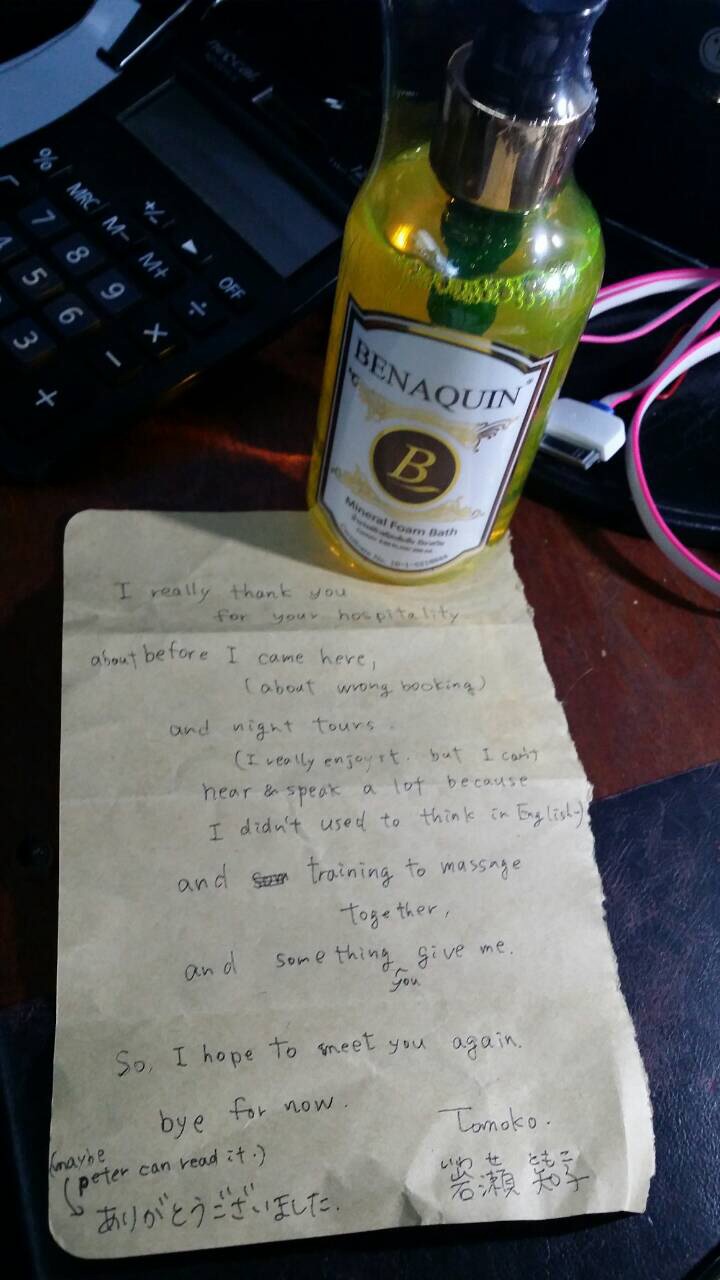 %
MRC
M-
M+
+/-
▶
OFF
7
8
9
÷
4
5
6
×
3
−
+
BENAQUIN
B
Mineral Foam Bath
I really thank you
for your hospitality
about before I came here,
(about wrong booking)
and night tours.
(I really enjoy it. but I can't
hear & speak a lot because
I didn't used to think in English)
and training to massage
together,
and something give me.
you
So, I hope to meet you again.
bye for now.
Tomoko.
いわ せ ともこ
岩瀬 知子
(maybe
peter can read it.)
ありがとうございました.